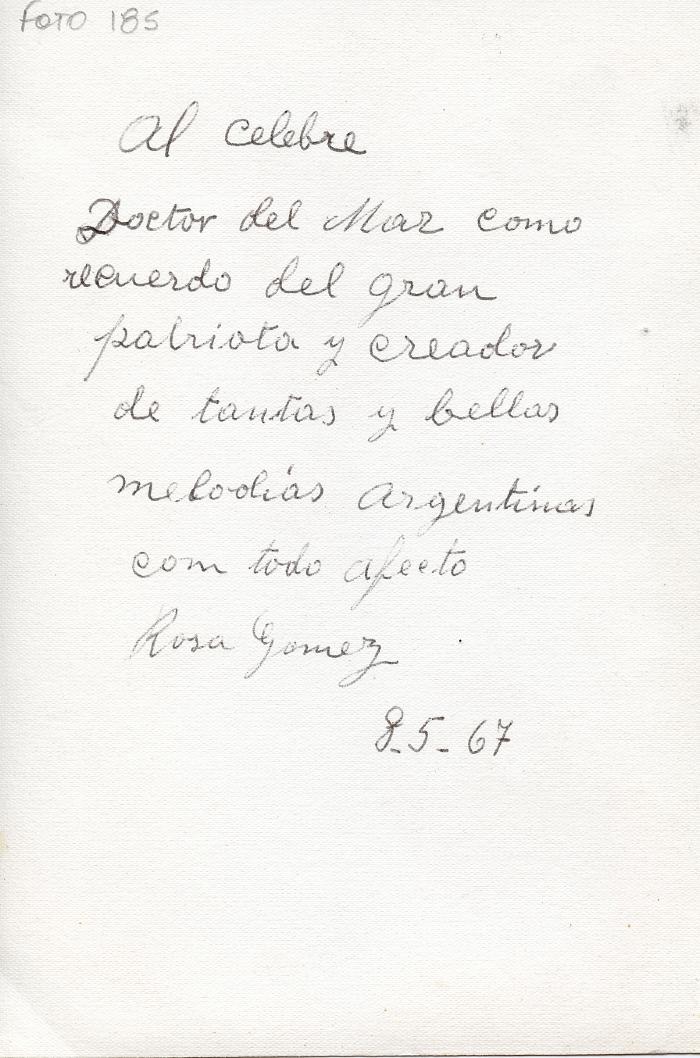 FOTO 185
Al celebre
Doctor del Mar como
recuerdo del gran
patriota y creador
de tantas y bellas
melodías argentinas
com todo afecto
Rosa Gomez
8-5-67